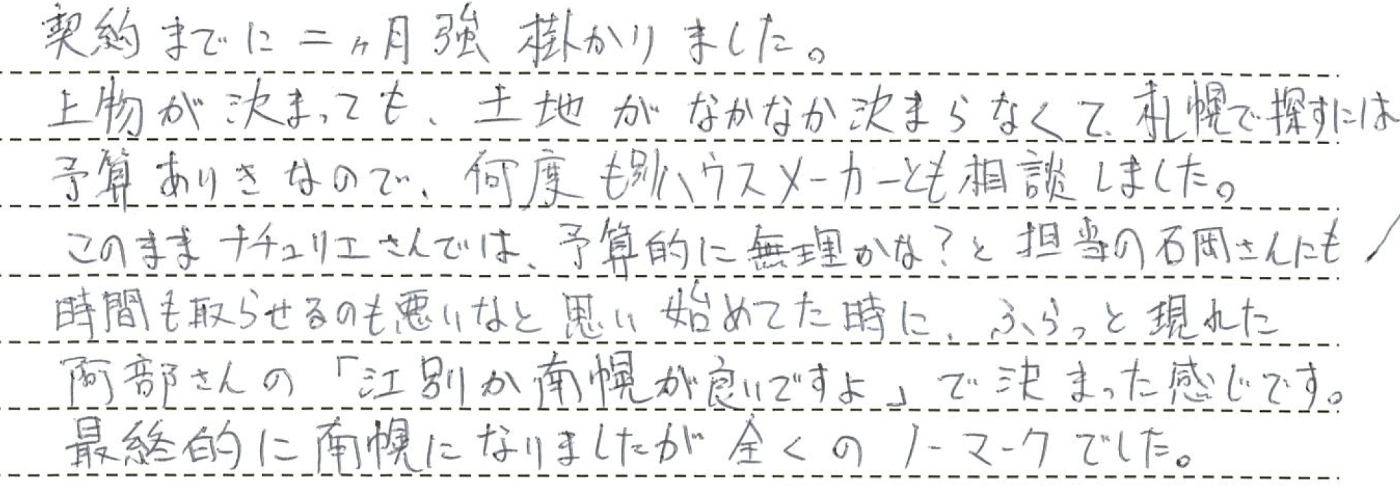 契約までに二ヶ月強掛かりました。
上物が決まっても、土地がなかなか決まらなくて、札幌で探すには
予算ありきなので、何度も別ハウスメーカーとも相談しました。
このままナチュリエさんでは、予算的に無理かな?と担当の石岡さんにも
時間も取らせるのも悪いなと思い始めてた時に、ふらっと現れた
阿部さんの「江別か南幌が良いですよ」で決まった感じです。
最終的に南幌になりましたが全くのノーマークでした。